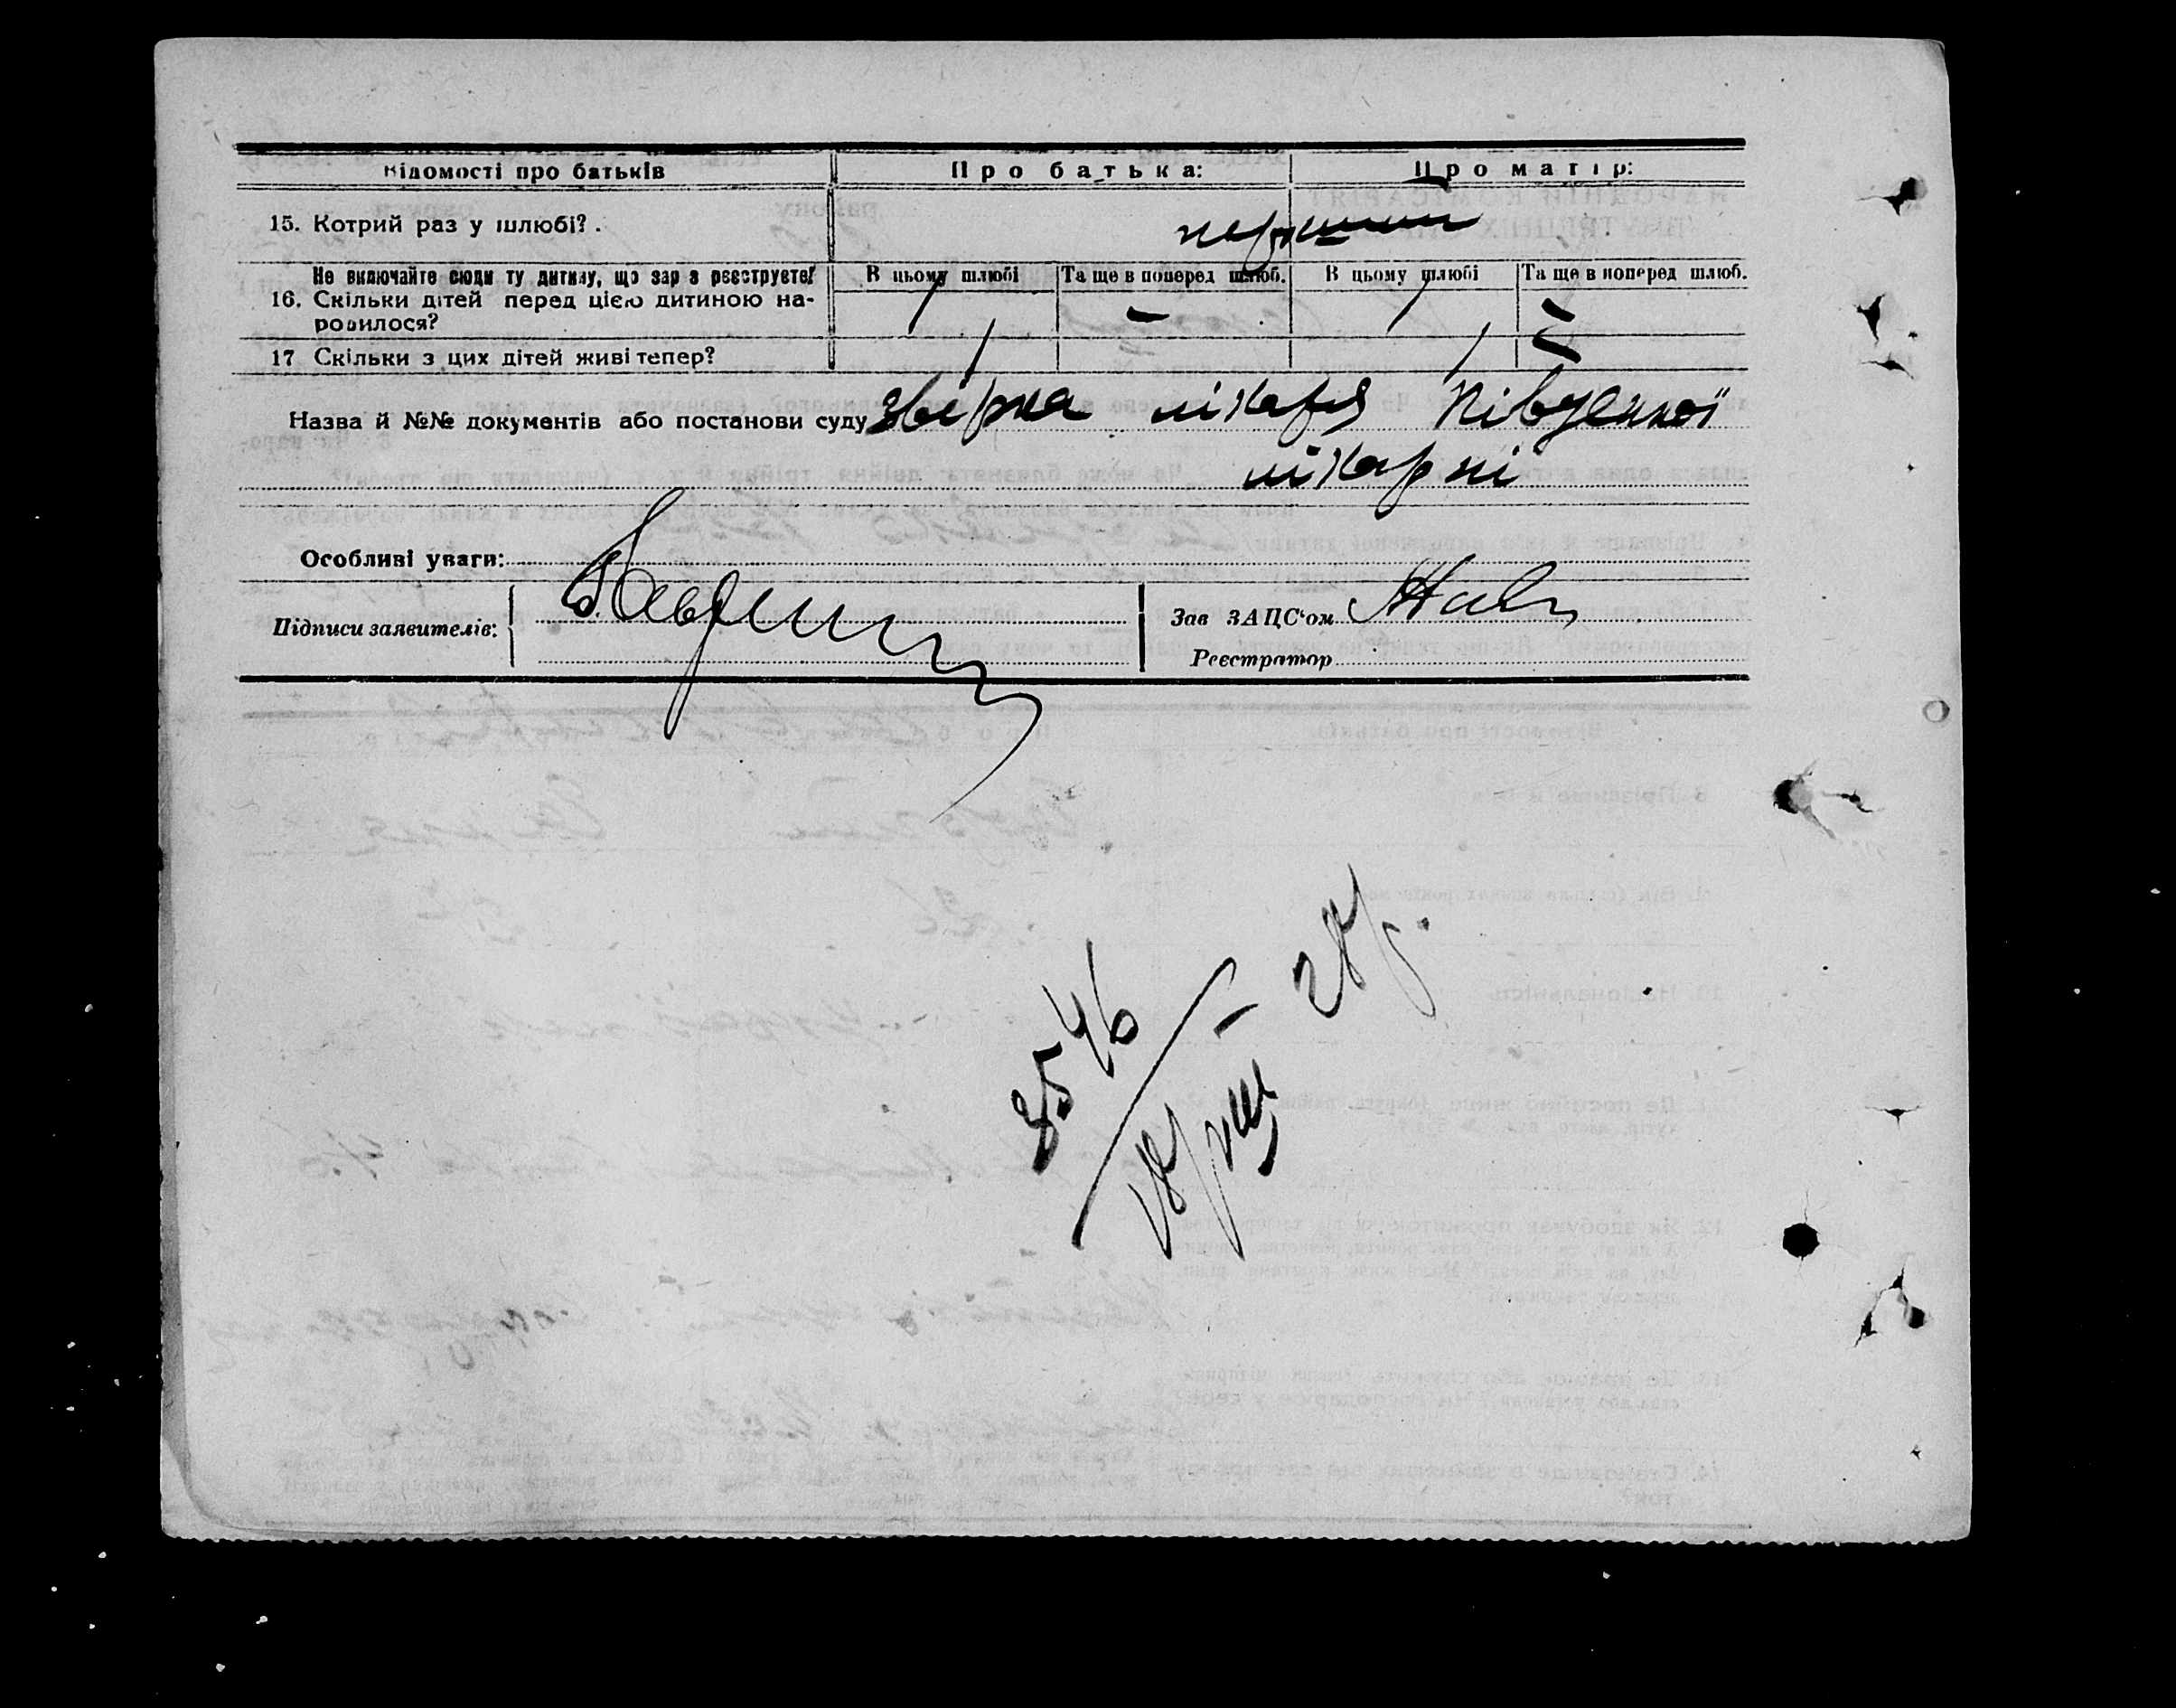 Відомості про батьків Про батька: Про матір:
15. Котрий раз у шлюбі? . перший
Не включайте сюди ту дитину, що зараз реєструєте! В цьому шлюбі Та ще в поперед шлюб. В цьому шлюбі Та ще в поперед шлюб.
16. Скільки дітей перед цією дитиною на-
родилося? 1 – 1 –
17 Скільки з цих дітей живі тепер? 1 1 –
Назва й №№ документів або постанови суду лікаря Південної
лікарні
Особливі уваги:
Підписи заявителів:
Зав ЗАЦС'ом
Реєстратор
28р.